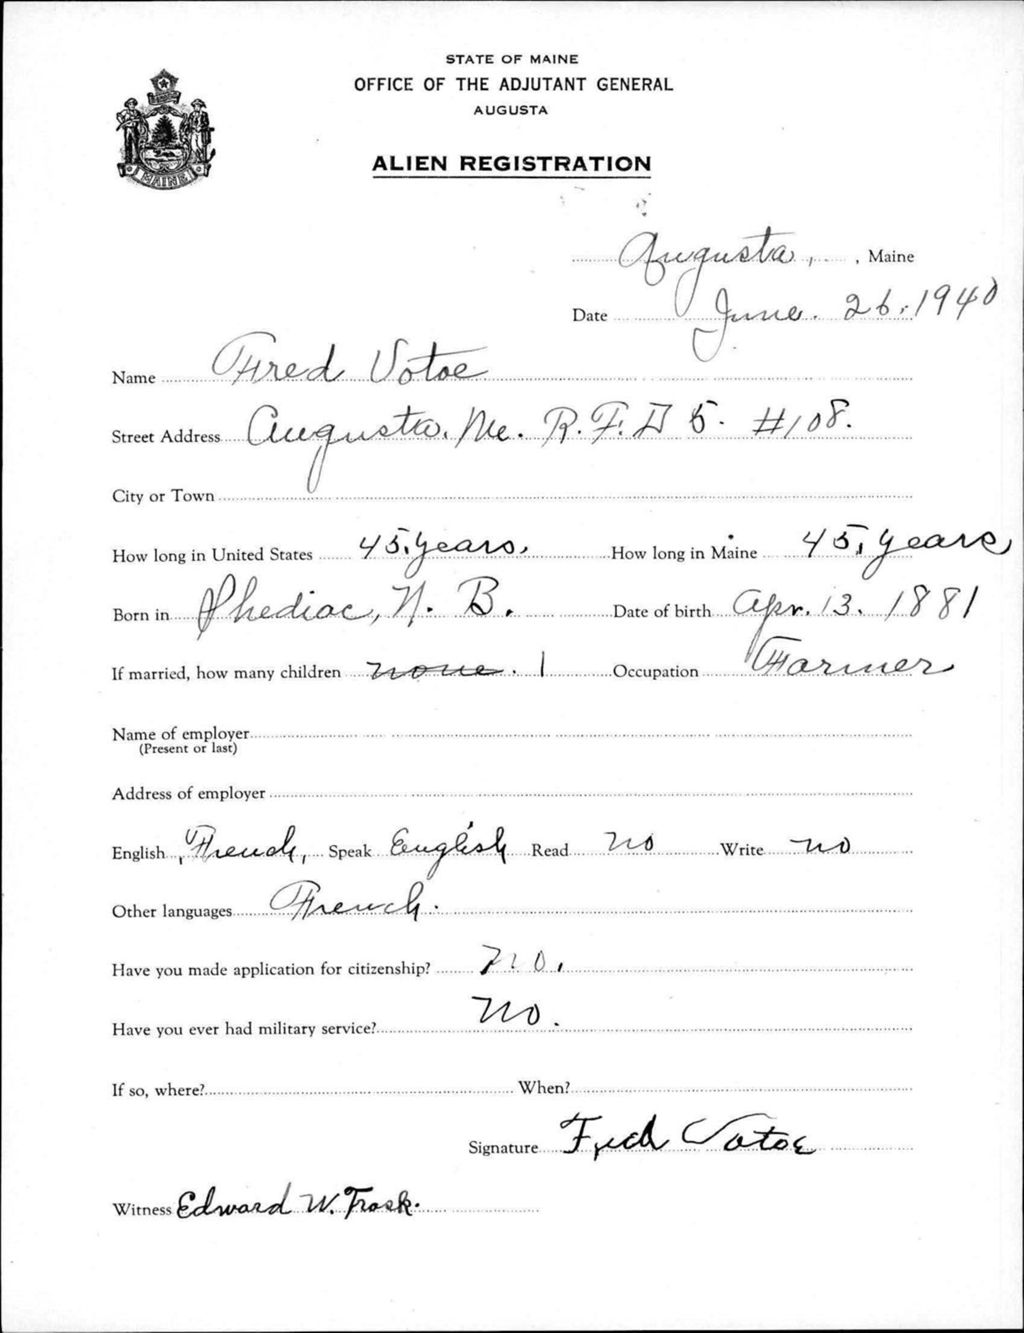 STATE OF MAINE
OFFICE OF THE ADJUTANT GENERAL
AUGUSTA
ALIEN REGISTRATION
MAINE
Augusta, , Maine
Date June. 26, 1940
Name Fred Votoe
Street Address Augusta, Me. R.F.D 5. #108.
City or Town
How long in United States 45, years, How long in Maine 45, years,
Born in Shediac, N. B. Date of birth Apr. 13. 1881
If married, how many children none. 1 Occupation Farmer
Name of employer
(Present or last)
Address of employer
English, French, Speak English Read no Write no
Other languages French.
Have you made application for citizenship? No.
Have you ever had military service? No.
If so, where? When?
Signature Fred Votoe
Witness Edward W. Trask.